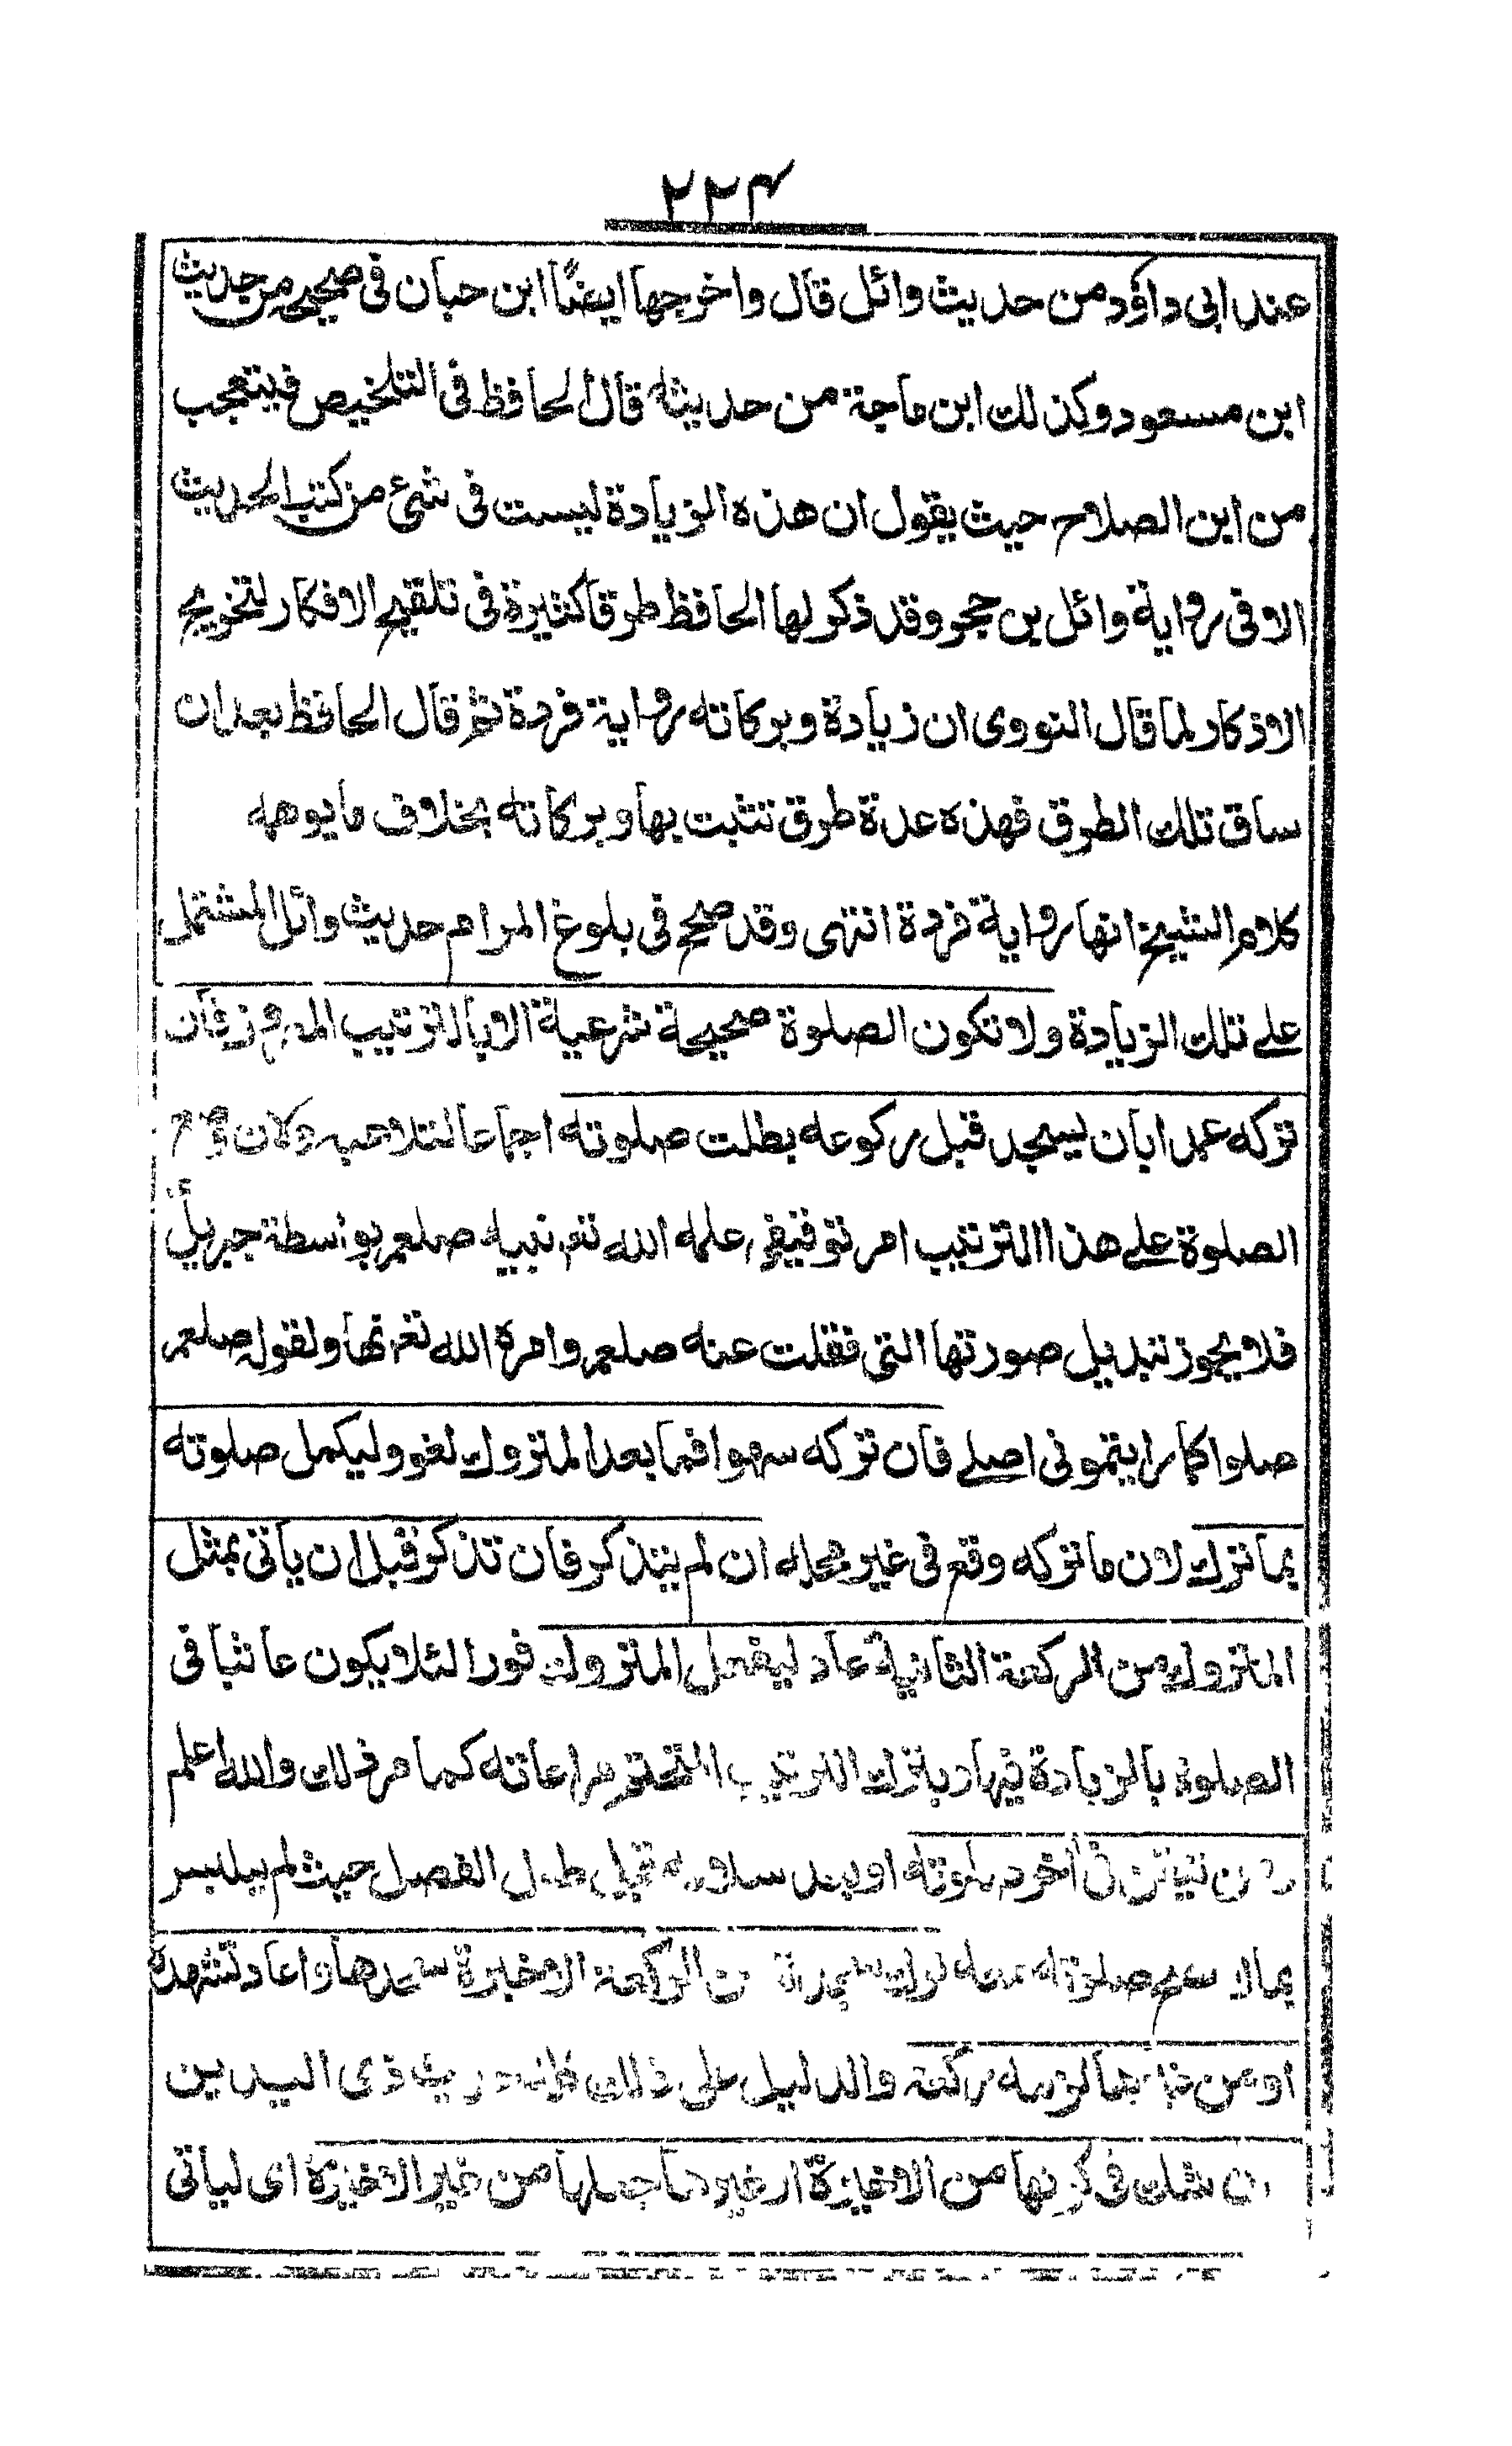 ٢٢٤
عند ابى داؤد من حديث وائل قال واخرجها ايضًا ابن حبان فى صحيحه من حديث
ابن مسعود وكذلك ابن ماجة من حديثه قال الحافظ فى التلخيص فيتعجب
من ابن الصلاح حيث يقول ان هذه الزيادة ليست فى شئ من كتب الحديث
الا فى رواية وائل بن حجر وقد ذكر لها الحافظ طرقا كثيرة فى تلقيح الافكار لتخريج
الاذكار لما قال النووى ان زيادة وبركاته رواية فردة ثم قال الحافظ بعد ان
ساق تلك الطرق فهذه عدة طرق تثبت بها وبركاته بخلاف ما يوهمه
كلام الشيخ انها رواية فردة انتهى وقد صحح فى بلوغ المرام حديث وائل المشتمل
على تلك الزيادة ولا تكون الصلوة صحيحة شرعية الا بالترتيب فان
تركه عمدا بان يسجد قبل ركوعه بطلت صلوته اجماعا لتلاعبه ولان
الصلوة على هذا الترتيب امر توقيفى علمه الله تعم نبيه صلعم بواسطة جبريل
فلا يجوز تبديل صورتها التى نقلت عنه صلعم وامره الله تعم بها ولقوله صلعم
صلوا كما رايتمونى اصلى فان تركه سهوا فما بعد المتروك لغو وليكمل صلوته
بما ترك لان ما تركه وقع فى غير محله ان لم يتذكر فان تذكر قبل ان ياتى بمثل
المتروك من الركعة الثانية عاد ليفعل المتروك فورا لئلا يكون عابثا فى
الصلوة بالزيادة فيها وبترك الترتيب المتحتم مراعاته كما مر ذلك والله اعلم
فى اخر صلوته او بعد سلامه قبل طول الفصل حيث لم يتلبس
بما لا صلوته معه ترك سجدة من الركعة الاخيرة سجدها واعاد تشهده
او من لزمه ركعة والدليل على ذلك حديث ذى اليدين
شك فى كونها من الاخيرة او غيرها جعلها من غير الاخيرة اى لياتى